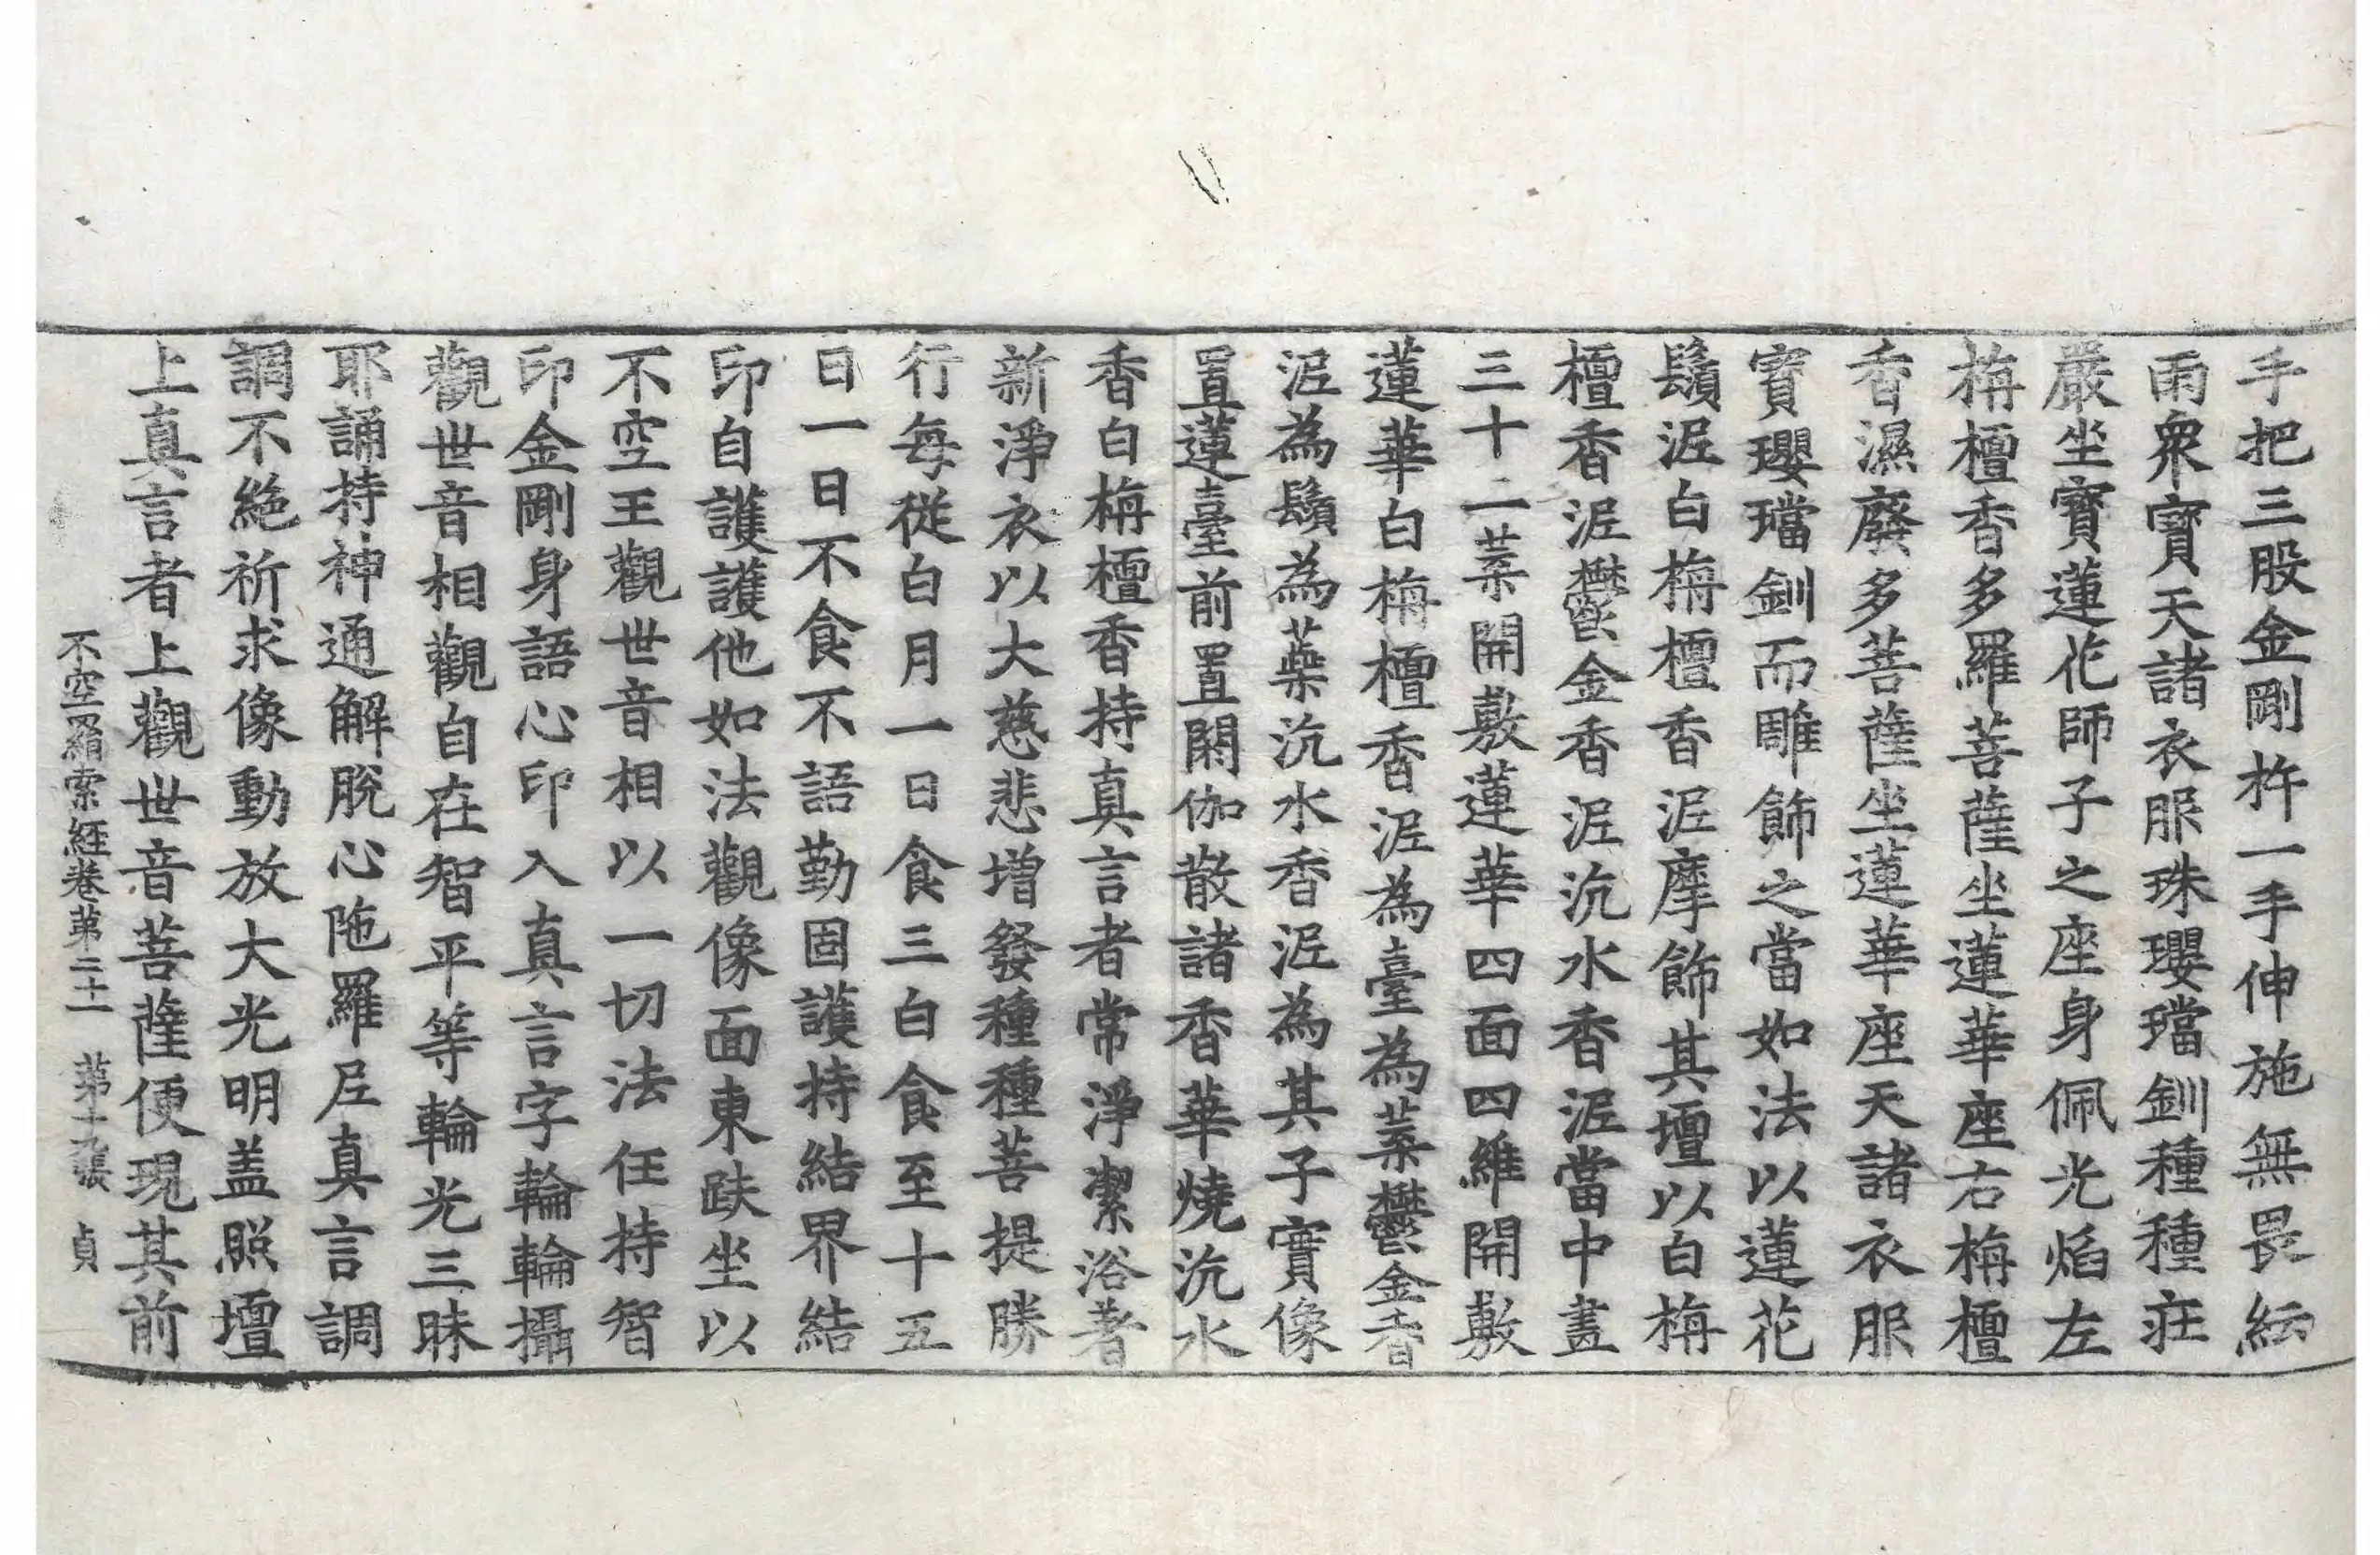 手把三股金剛杵一手伸施無畏紜
雨衆寶天諸衣服珠瓔璫釧種種莊
嚴坐寶蓮花師子之座身佩光焰左
栴檀香多羅菩薩坐蓮華座右栴檀
香濕廢多菩薩坐蓮華座天諸衣服
寶瓔璫釧而雕飾之當如法以蓮花
鬚泥白栴檀香泥摩飾其壇以白栴
檀香泥欝金香泥沉水香泥當中畫
三十二葉開敷蓮華四面四維開敷
蓮華白栴檀香泥為臺為葉欝金香
泥為鬚為蘂沉水香泥為其子實像
置蓮臺前置閼伽散諸香華燒沉水
香白栴檀香持真言者常淨潔浴著
新淨衣以大慈悲增發種種菩提勝
行每從白月一日食三白食至十五
日一日不食不語勤固護持結界結
印自護護他如法觀像面東趺坐以
不空王觀世音相以一切法任持智
印金剛身語心印入真言字輪輪攝
觀世音相觀自在智平等輪光三昧
耶誦持神通解脫心陁羅尼真言調
調不絕祈求像動放大光明盖照壇
上真言者上觀世音菩薩便現其前
不空羂索經卷第二十一 第十九張 貞